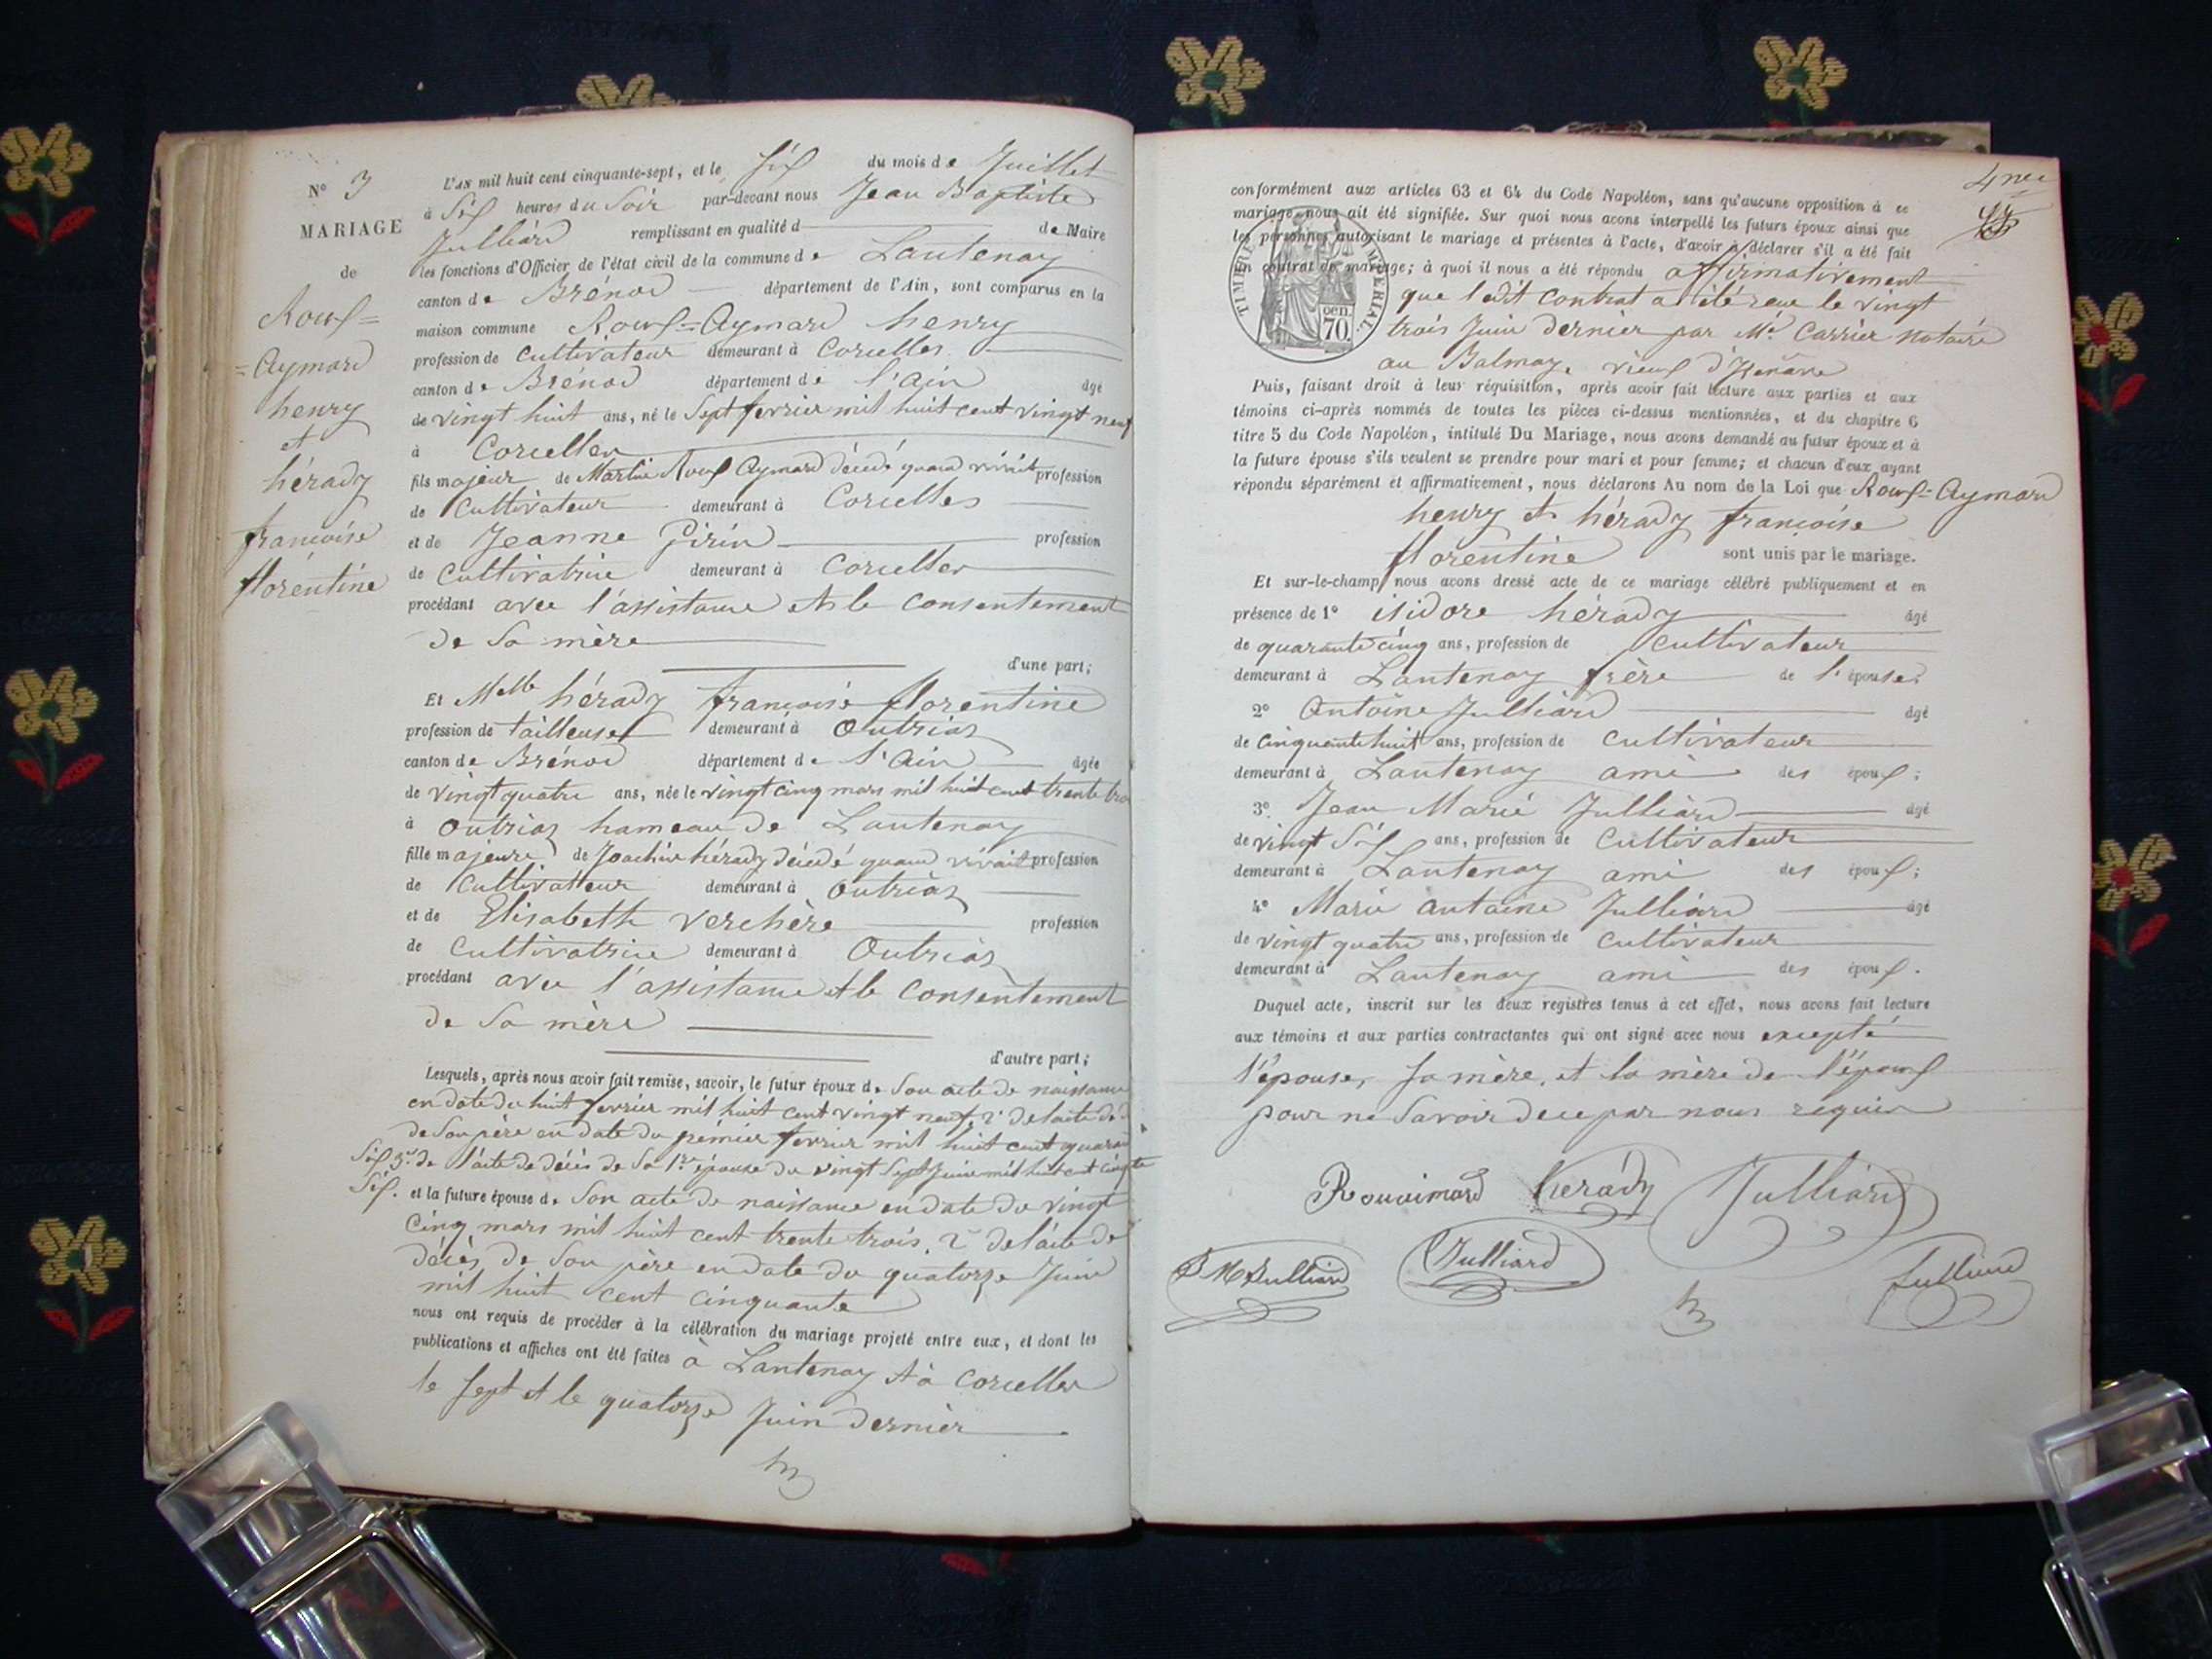 N° 3
MARIAGE
de
Roux=
=Aymard
henry
et
hérady
françoise
florentine
L'AN mil huit cent cinquante-sept, et le six du mois de Juillet
à six heures du soir par-devant nous Jean Baptiste
Julliard remplissant en qualité d de Maire
les fonctions d'Officier de l'état civil de la commune de Lantenay
canton de Brénod département de l'Ain, sont comparus en la
maison commune Roux=Aymard henry
profession de cultivateur demeurant à Corcelles
canton de Brénod département de l'Ain âgé
de vingt huit ans, né le sept fevrier mil huit cent vingt neuf
à Corcelles
fils majeur de Martin Roux Aymard décédé quand vivait profession
de Cultivateur demeurant à Corcelles
et de Jeanne Pirin profession
de Cultivatrice demeurant à Corcelles
procédant avec l'assistance et le consentement
de sa mère
d'une part;
Et Melle hérady françoise florentine
profession de tailleuse demeurant à Outriaz
canton de Brénod département de l'Ain âgée
de vingt quatre ans, née le vingt cinq mars mil huit cent trente trois
à Outriaz hameau de Lantenay
fille majeure de Joachin hérady décédé quand vivait profession
de Cultivatteur demeurant à Outriaz
et de Elisabeth Verchère profession
de Cultivatrice demeurant à Outriaz
procédant avec l'assistance et le consentement
de sa mère
d'autre part;
Lesquels, après nous avoir fait remise, savoir, le futur époux de son acte de naissance
en date du huit fevrier mil huit cent vingt neuf, 2° de l'acte de d.
de son père en date du premier fevrier mil huit cent quarante
six 3° de l'acte de décès de sa 1re épouse du vingt sept juin mil huit cent cinqte
six. et la future épouse de son acte de naissance en date du vingt
cinq mars mil huit cent trente trois, 2° de l'acte de
décès de son père en date du quatorze Juin
mil huit cent cinquante
nous ont requis de procéder à la célébration du mariage projeté entre eux, et dont les
publications et affiches ont été faites à Lantenay et à Corcelles
le sept et le quatorze Juin dernier
4 me
conformément aux articles 63 et 64 du Code Napoléon, sans qu'aucune opposition à ce
mariage nous ait été signifiée. Sur quoi nous avons interpellé les futurs époux ainsi que
les personnes autorisant le mariage et présentes à l'acte, d'avoir à déclarer s'il a été fait
un contrat de mariage; à quoi il nous a été répondu affirmativement
TIMBRE IMPÉRIAL.
CEN
70.
que ledit contrat a été reçu le vingt
trois Juin dernier par Me. Carrier notaire
au Balmay, vieux d'Izenave
Puis, faisant droit à leur réquisition, après avoir fait lecture aux parties et aux
témoins ci-après nommés de toutes les pièces ci-dessus mentionnées, et du chapitre 6
titre 5 du Code Napoléon, intitulé Du Mariage, nous avons demandé au futur époux et à
la future épouse s'ils veulent se prendre pour mari et pour femme; et chacun d'eux ayant
répondu séparément et affirmativement, nous déclarons Au nom de la Loi que Roux=Aymard
henry et hérady françoise
florentine sont unis par le mariage.
Et sur-le-champ nous avons dressé acte de ce mariage célébré publiquement et en
présence de 1° isidore hérady âgé
de quarante cinq ans, profession de Cultivateur
demeurant à Lantenay frère de l'épouse;
2° Antoine Julliard âgé
de cinquante huit ans, profession de cultivateur
demeurant à Lantenay ami des époux;
3° Jean Marie Julliard âgé
de vingt six ans, profession de Cultivateur
demeurant à Lantenay ami des époux;
4° Marie antoine Julliard âgé
de vingt quatre ans, profession de cultivateur
demeurant à Lantenay ami des époux.
Duquel acte, inscrit sur les deux registres tenus à cet effet, nous avons fait lecture
aux témoins et aux parties contractantes qui ont signé avec nous excepté
l'épouse, sa mère, et la mère de l'époux
pour ne savoir de ce par nous requis
Rouaimard herády Julliard
J M Julliard Julliard Julliard